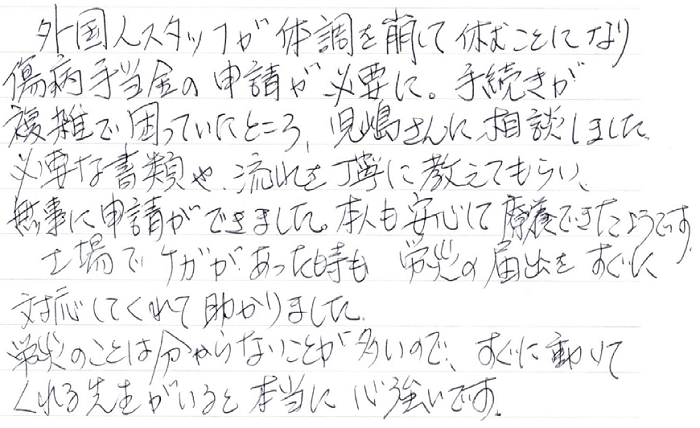 外国人スタッフが体調を崩して休むことになり
傷病手当金の申請が必要に。手続きが
複雑で困っていたところ、児嶋さんに相談しました。
必要な書類や、流れを丁寧に教えてもらい、
無事に申請ができました。本人も安心して療養できたようです。
工場でケガがあった時も 労災の届出をすぐに
対応してくれて助かりました。
労災のことは分からないことが多いので、すぐに動いて
くれる先生がいると本当に心強いです。